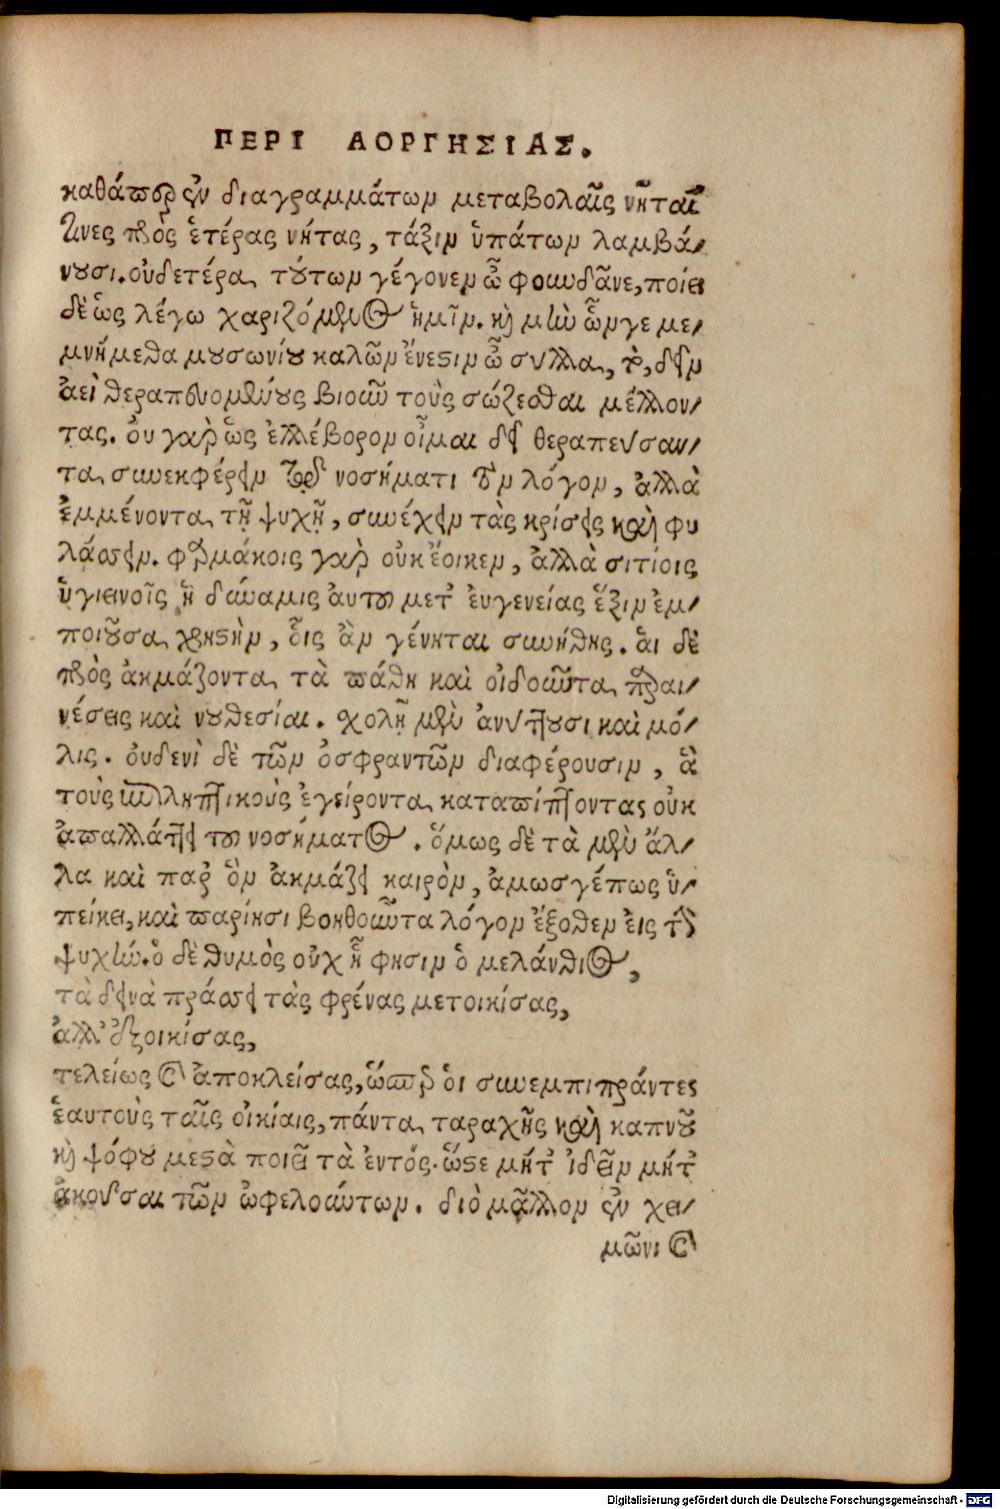 ΠΕΡΙ ΑΟΡΓΗΣΙΑΣ.
καθάπερ ἐν διαγραμμάτων μεταβολαῖς νῆται
τινες πρὸς ἑτέρας νήτας, τάξιν ὑπάτων λαμβά-
νουσι. οὐδετέρα τούτων γέγονεν ὦ φουνδᾶνε, ποιεῖ
δὲ ὥς λέγω χαριζόμενος ἡμῖν. καὶ μὴν ὧνγε με-
μνήμεθα μουσωνίου καλῶν ἕνεστιν ὦ σύλλα, τὸ, δεῖν
ἀεὶ θεραπευομένους βιοῦν τοὺς σώζεσθαι μέλλον-
τας. ὀυ γὰρ ὥς ἐλλέβορον οἶμαι δεῖ θεραπεύσαν-
τα συνεκφέρειν τῷ νοσήματι τὸν λόγον, ἀλλὰ
ἐμμένοντα τῇ ψυχῇ, συνέχειν τὰς κρίσεις καὶ φυ
λάσσειν. φαρμάκοις γὰρ οὐκ ἔοικεν, ἀλλὰ σιτίοις
ὑγιεινοῖς ἡ δύναμις ἀυτοῦ μετ ἐυγενείας ἕξιν ἐμ-
ποιοῦσα χρηστὴν, οἷς ἂν γένηται συνήθης. ἁι δὲ
πρὸς ἀκμάζοντα τὰ πάθη καὶ οἰδοῦντα παραι-
νέσεις καὶ νουθεσίαι. σχολῇ μὲν ἀνύττουσι καὶ μό-
λις. ὀυδενὶ δὲ τῶν ὀσφραντῶν διαφέρουσιν, ἃ
τοὺς ἐπιληπτικοὺς ἐγείροντα καταπίπτοντας οὐκ
ἀπαλλάττει τοῦ νοσήματος. ὅμως δὲ τὰ μὲν ἄλ-
λα καὶ παρ ὃν ἀκμάζει καιρὸν, ἀμωσγέπως ὑ-
πείκει, καὶ παρίησι βοηθοῦντα λόγον ἔξοθεν ἐις τὴν
ψυχήν. ὁ δὲ θυμὸς οὐχ ᾗ φησιν ὁ μελάνθιος,
τὰ δεινὰ πράσσει τὰς φρένας μετοικίσας,
ἀλλ' ἐξοικίσας,
τελείως καὶ ἀποκλείσας, ὥσπερ ὁι συνεμπιπράντες
ἑαυτοὺς ταῖς οἰκίαις, πάντα ταραχῆς καὶ καπνοῦ
καὶ ψόφου μεστὰ ποιεῖ τὰ ἐντός. ὥστε μήτ ἰδεῖν μήτ
ἀκοῦσαι τῶν ὠφελούντων. διὸ μᾶλλον ἐν χει-
μῶνι καὶ
Digitalisierung gefördert durch die Deutsche Forschungsgemeinschaft - DFG